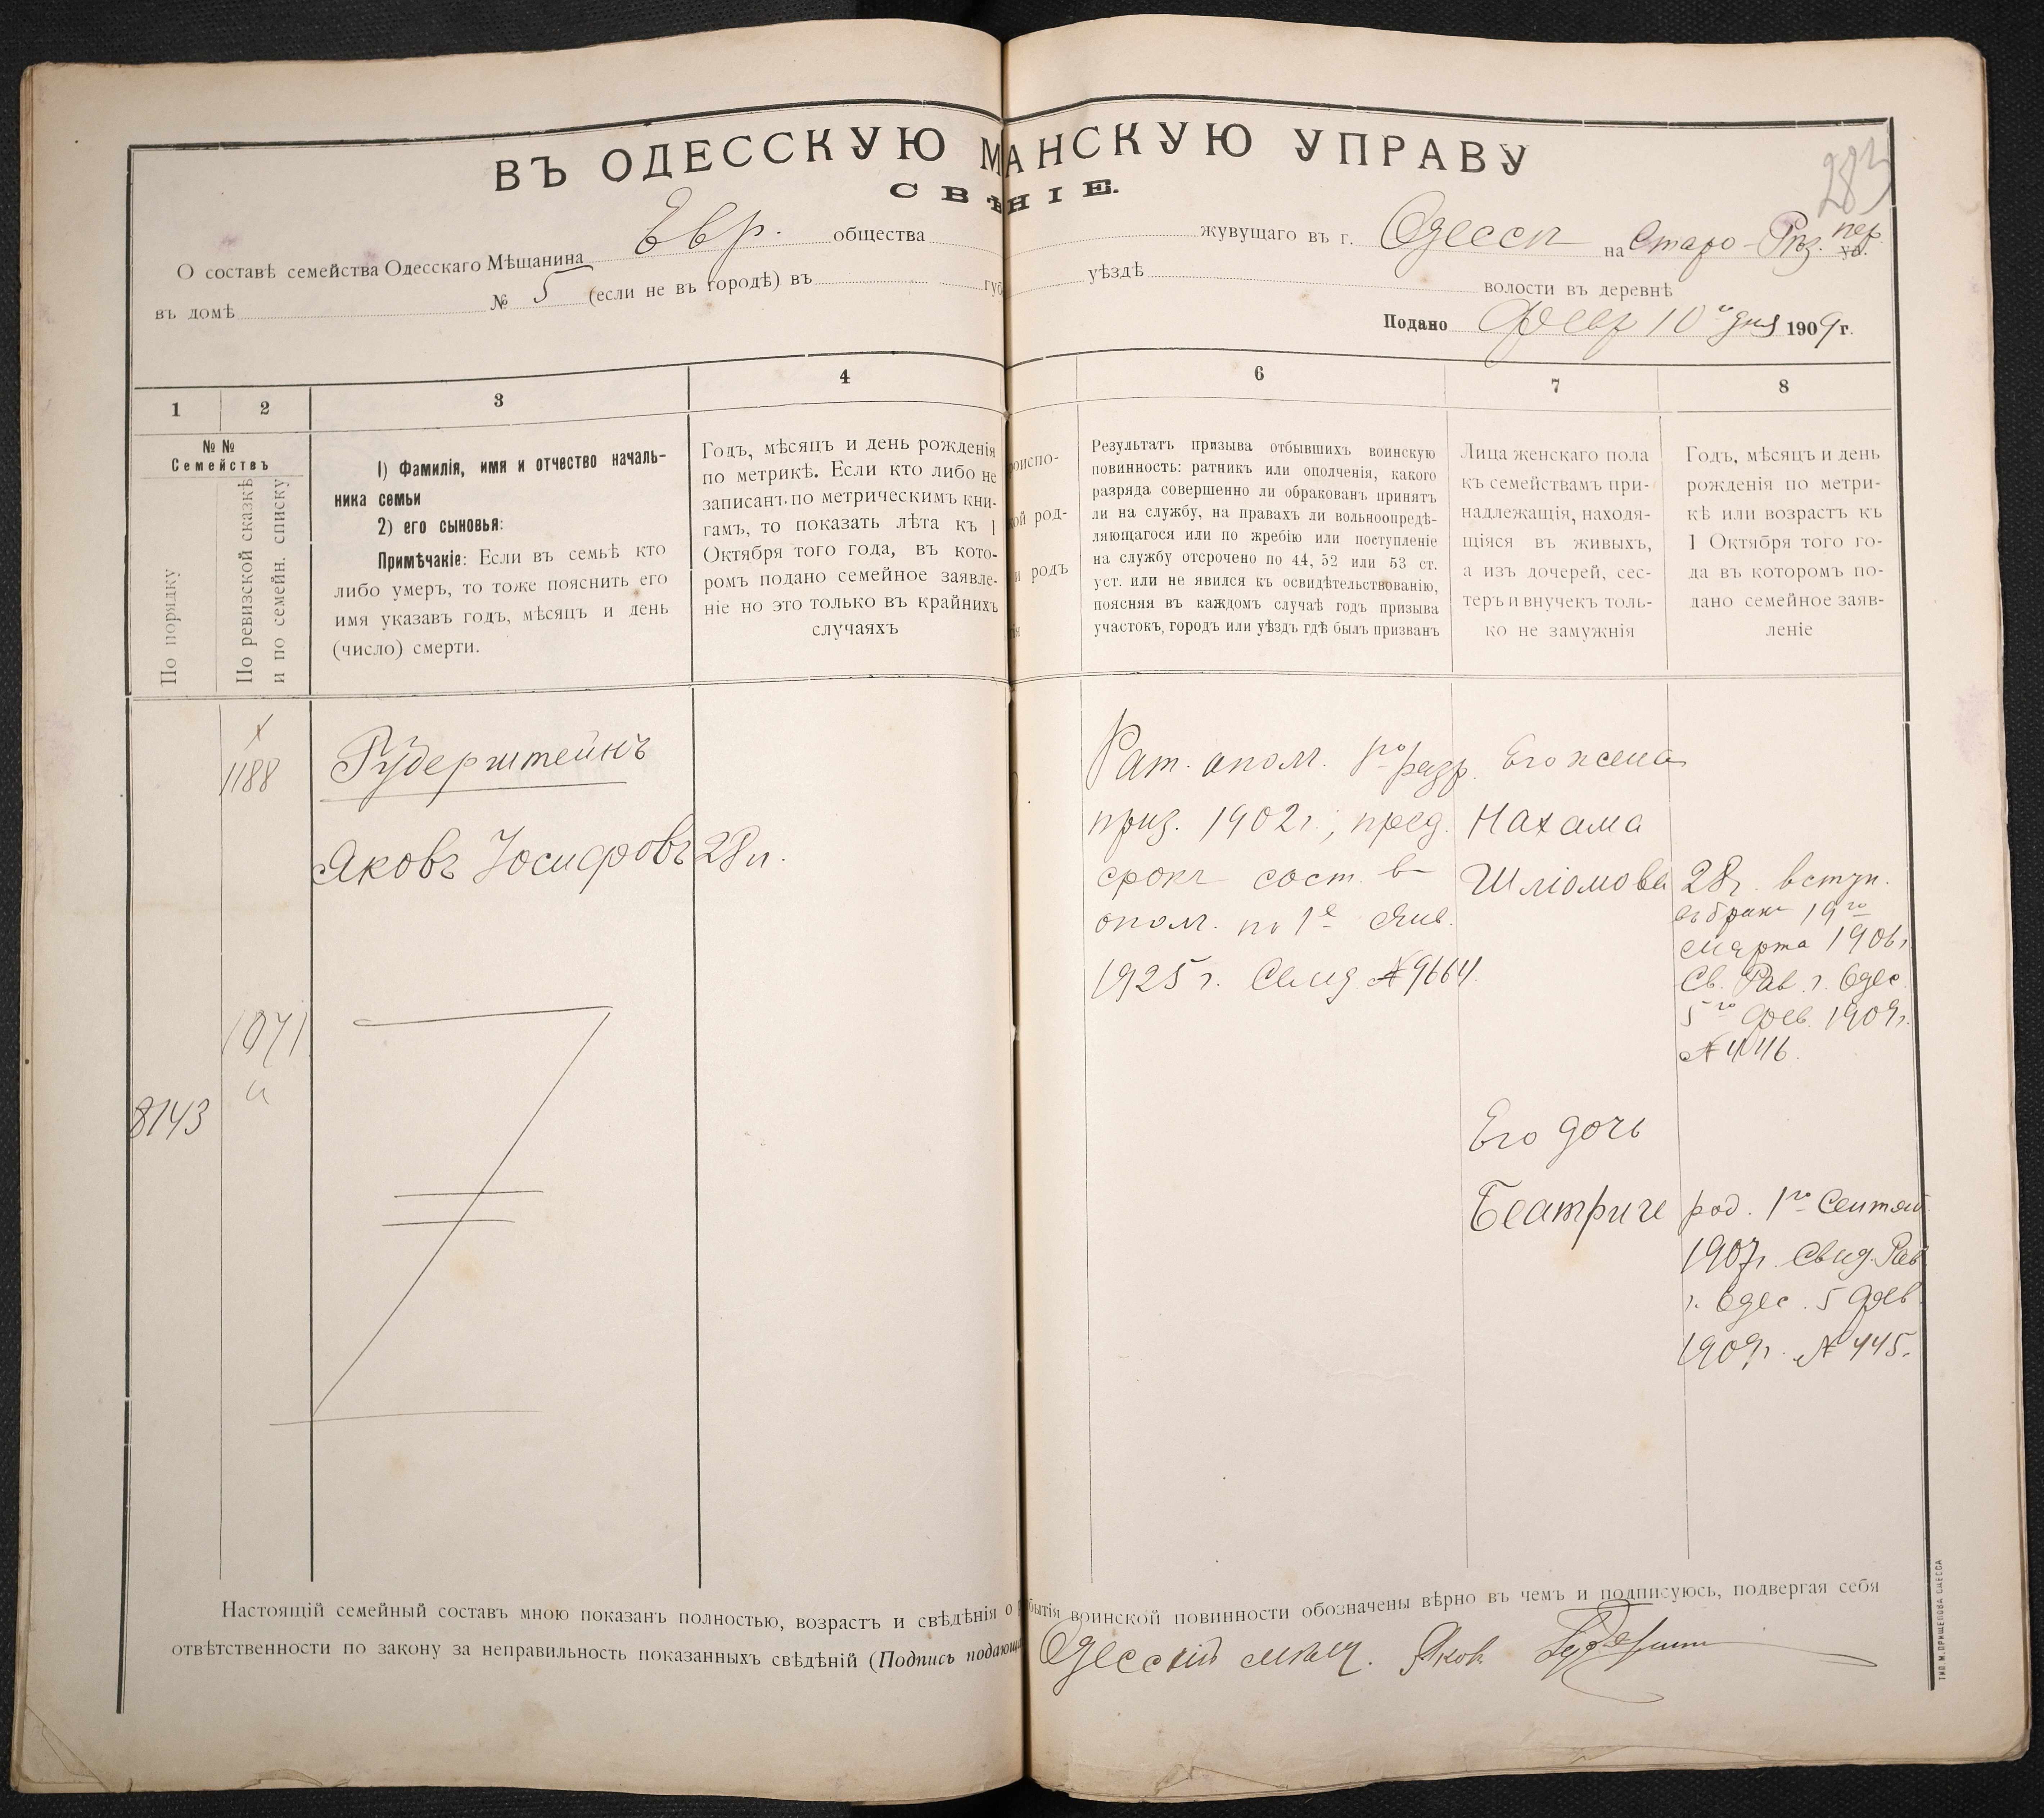 283
ВЪ ОДЕССКУЮ М АНСКУЮ УПРАВУ
СВѢ НІЕ.
О составѣ семейства Одесскаго Мѣщанина Евр. общества жувущаго въ г. Одессѣ на Старо-Рѣз. пер. ул.
въ домѣ № 5 (если не въ городѣ) въ губ уѣздѣ волости въ деревнѣ
Подано Февр 10го дня 1909 г.
1 2 3 4 6 7 8
№ №
Семействъ
По порядку
По ревизской сказкѣ
и по семейн. списку
1) Фамилія, имя и отчество началь-
ника семьи
2) его сыновья:
Примѣчаніе: Если въ семьѣ кто
либо умеръ, то тоже пояснить его
имя указавъ годъ, мѣсяцъ и день
(число) смерти.
Годъ, мѣсяцъ и день рожденія
по метрикѣ. Если кто либо не
записанъ по метрическимъ кни-
гамъ, то показать лѣта къ 1
Октября того года, въ кото-
ромъ подано семейное заявле-
ніе но это только въ крайнихъ
случаяхъ
роиспо-
кой род-
и родъ
Результатъ призыва отбывшихъ воинскую
повинность: ратникъ или ополченія, какого
разряда совершенно ли обракованъ принятъ
ли на службу, на правахъ ли вольноопредѣ-
ляющагося или по жребію или поступленіе
на службу отсрочено по 44, 52 или 53 ст.
уст. или не явился къ освидѣтельствованію,
поясняя въ каждомъ случаѣ годъ призыва
участокъ, городъ или уѣздъ гдѣ былъ призванъ
Лица женскаго пола
къ семействамъ при-
надлежащія, находя-
щіяся въ живыхъ,
а изъ дочерей, сес-
теръ и внучекъ толь-
ко не замужнія
Годъ, мѣсяцъ и день
рожденія по метри-
кѣ или возрастъ къ
1 Октября того го-
да въ которомъ по-
дано семейное заяв-
леніе
х
1188
Рудерштейнъ
Яковъ Іосифовъ 28 л.
1071
и
8143
Рат. опол. 1го разр.
приз. 1902 г., пред.
срокъ сост. въ
опол. по 1е Янв.
1925 г. Свид. № 9664.
Его жена
Нахама
Шліомова
28 г. вступ.
въ бракъ 19го
марта 1906 г.
Св. Рав. г. Одес.
5го фев. 1909 г.
№ 446.
Его дочь
Беатриче
род. 1го Сентяб
1907 г. Свид. Рав
г. Одес. 5 фев.
1909 г. № 445.
Настоящій семейный составъ мною показанъ полностью, возрастъ и свѣдѣнія о бытія воинской повинности обозначены вѣрно въ чемъ и подписуюсь, подвергая себя
отвѣтственности по закону за неправильность показанныхъ свѣдѣній (Подпись подающ Одесскій мѣщ. Яков
ТИП. М. ПРИЩЕПОВА ОДЕССА